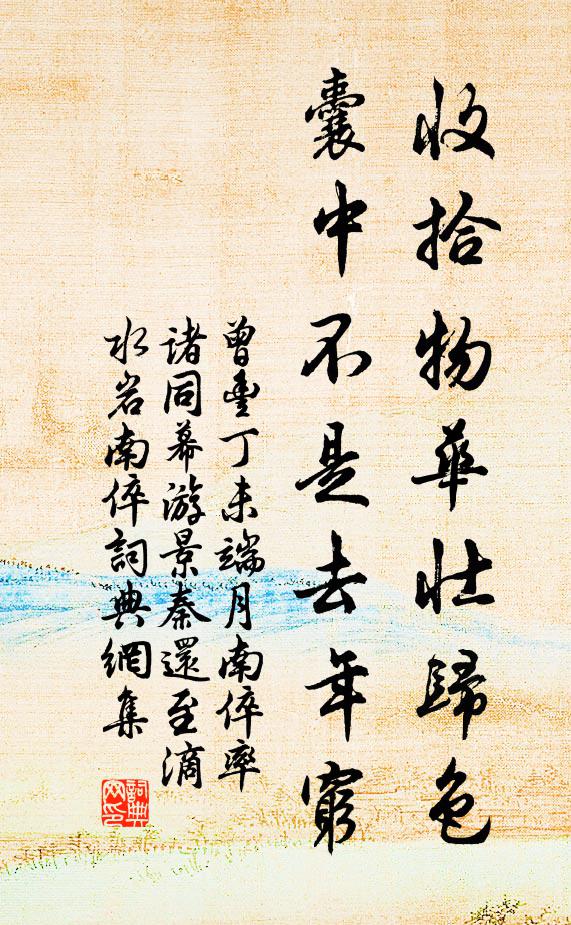 收拾物華壯歸色
囊中不是去年窮
曾豊丁未端月南倅率
諸同幕游景泰還至滴
水岩南倅詞典網集
詞典网印